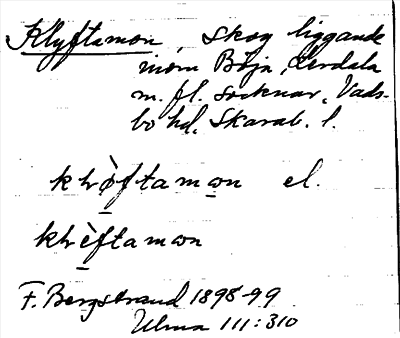 Klyftamon, skog liggande
inom Böja, Lerdala
m. fl. socknar, Vads-
bo hd, Skarab. l.
el.
F. Bergstrand 1898-99
Ulma 111:310